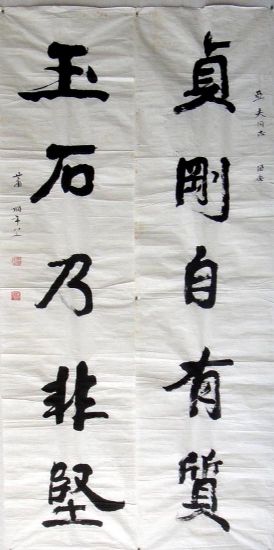 貞剛自有質
玉石乃非堅